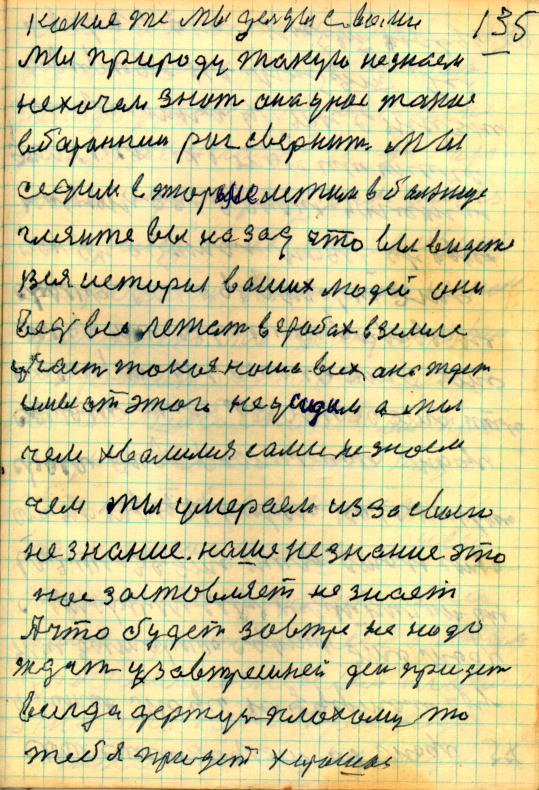 какие же мы деяды с вами 135
мы природу такую незнаем
нехочем знат она унас такие
вбараннии рог свернит. Мы
седим в этор летим в больнице
гляните вы на зад что вы видете
вся истори ваших людей они
ведь все лежат в гробах в земле
участ такоя наша всех она ждет
имы от этого неусидим а мы
чем хвалимся сами незнаем
чем мы умераем из за свого
не знание. наше незнание это
нас заставляет не знает
А что будет завтре не надо
ждат узавтрешней ден придет
всегда держис плохому то
тебя придет хорошая